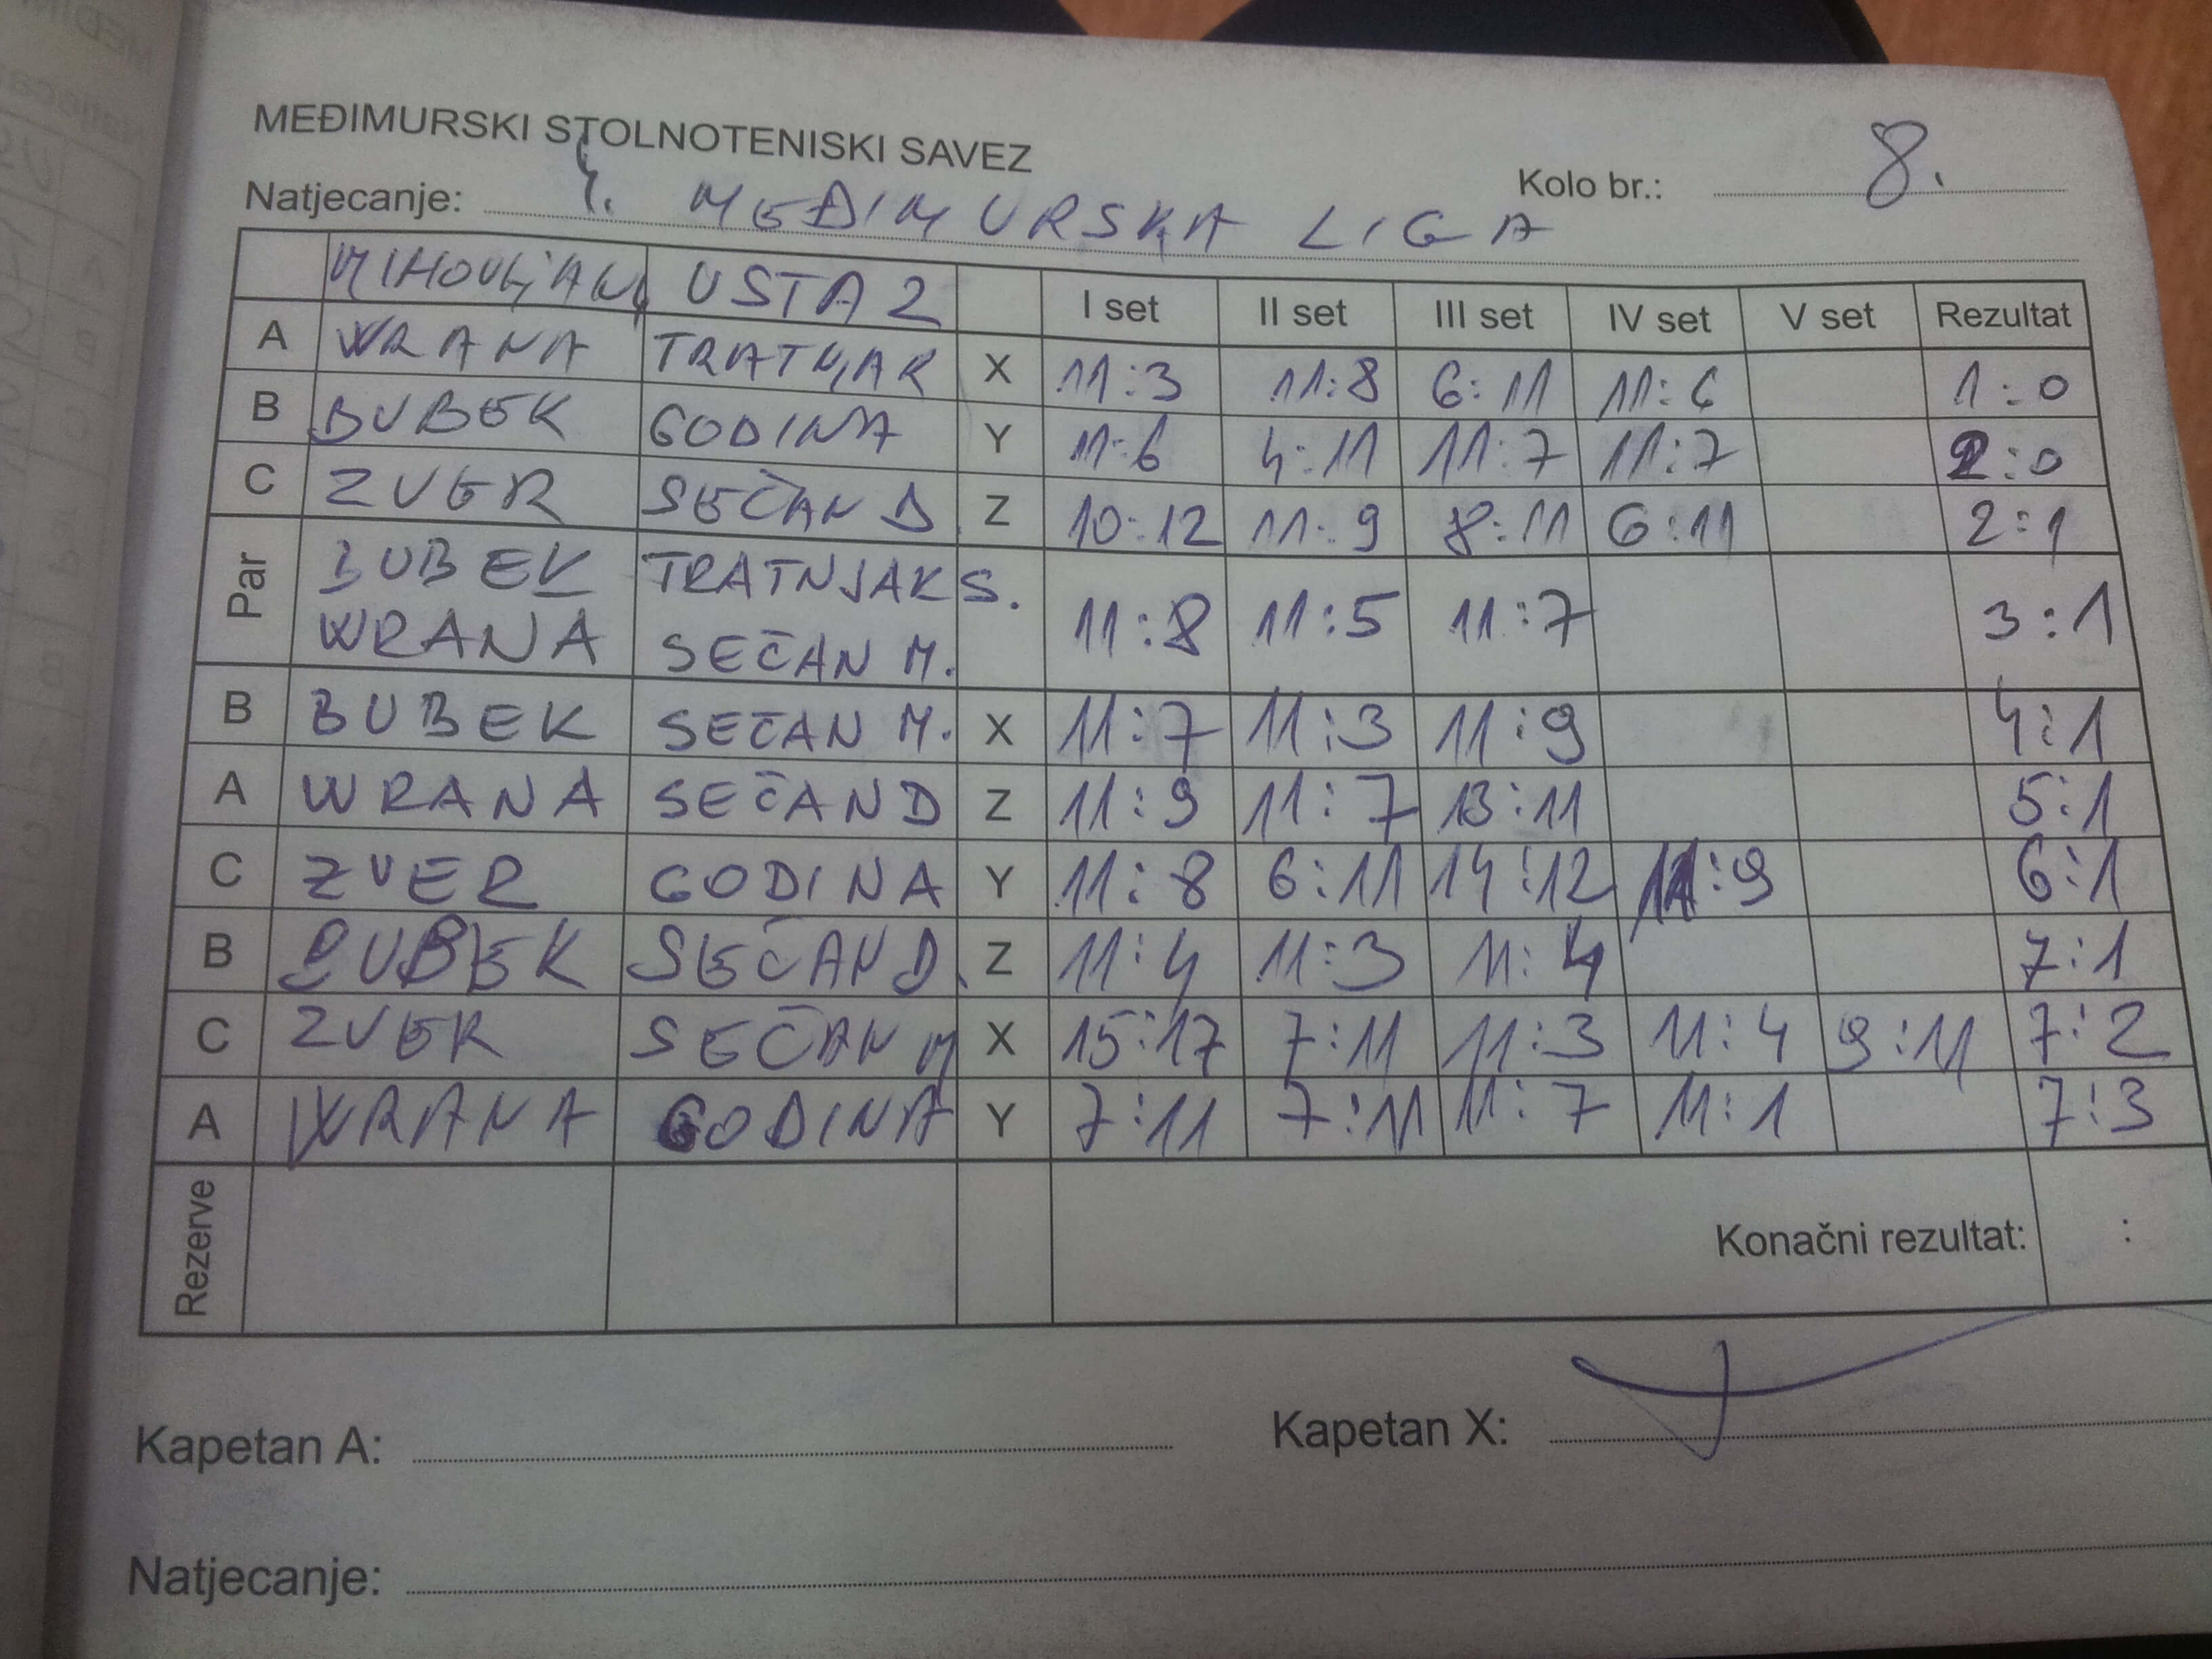 MEĐIMURSKI STOLNOTENISKI SAVEZ
Natjecanje: 4. MEĐIMURSKA LIGA Kolo br.: 8.
MIHOVLJANI USTA 2 I set II set III set IV set V set Rezultat
A WRANA TRATNJAK X 11:3 11:8 6:11 11:6 1:0
B BUBEK GODINA Y 11:6 4:11 11:7 11:7 2:0
C ZVER SEČAN D Z 10:12 11:9 8:11 6:11 2:1
Par BUBEK TRATNJAK S.
WRANA SEČAN M. 11:8 11:5 11:7 3:1
B BUBEK SEČAN M. X 11:7 11:3 11:9 4:1
A WRANA SEČAN D Z 11:9 11:7 13:11 5:1
C ZVER GODINA Y 11:8 6:11 14:12 11:9 6:1
B BUBEK SEČAN D. Z 11:4 11:3 11:4 7:1
C ZVER SEČAN M X 15:17 7:11 11:3 11:4 9:11 7:2
A WRANA GODINA Y 7:11 7:11 11:7 11:1 7:3
Rezerve Konačni rezultat: :
Kapetan A: Kapetan X:
Natjecanje: